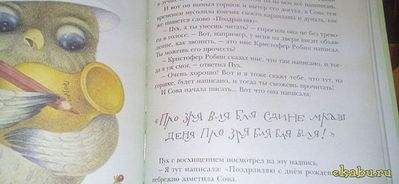 И вот он вымыл горшок и вытер его досуха, а Сова тем
временем мусолила кончик своего карандаша и думала, как
же пишется слово «Поздравляю».
— Пух, а ты умеешь читать? — спросила она не без тревоги
в голосе. — Вот, например, у меня на двери висит объявление,
как звонить, — это мне Кристофер Робин написал.
Ты можешь его прочесть?
— Кристофер Робин сказал мне, что там написано, и тогда
я уж смог, — ответил Пух.
— Очень хорошо! Вот и я тоже скажу тебе, что тут, на
горшке, будет написано, и тогда ты сможешь прочитать!
И Сова начала писать... Вот что она написала:
«Про зря вля бля сдине мраш
деня про зря бля бля вля!»
Пух с восхищением посмотрел на эту надпись.
— Я тут написала: «Поздравляю с днём рождения», —
небрежно заметила Сова.
ekabu.ru